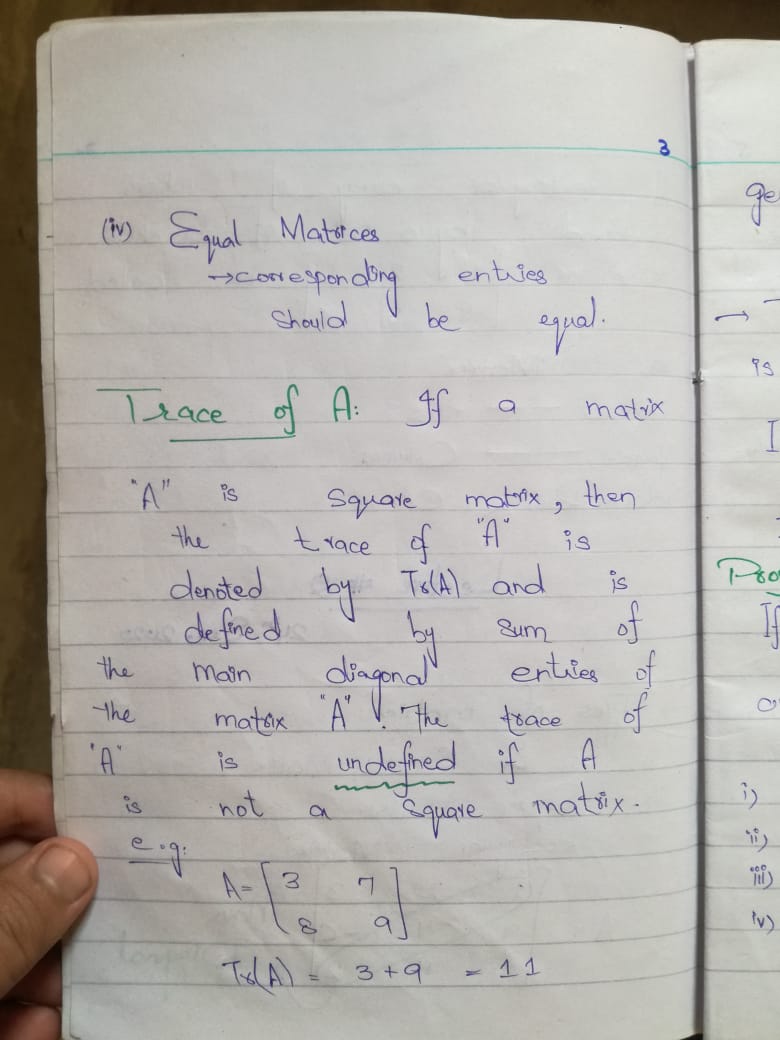 3
(iv) Equal Matrices
→corresponding entries
should be equal.
Trace of A: If a matrix
"A" is square matrix, then
the trace of "A" is
denoted by Tr(A) and is
defined by sum of
the main diagonal entries of
the matrix "A". The trace of
"A" is undefined if A
is not a square matrix.
e.g:
A= [3 7
8 9]
Tr(A) = 3+9 = 11
ge
→
is
I
If
i)
ii)
iii)
iv)